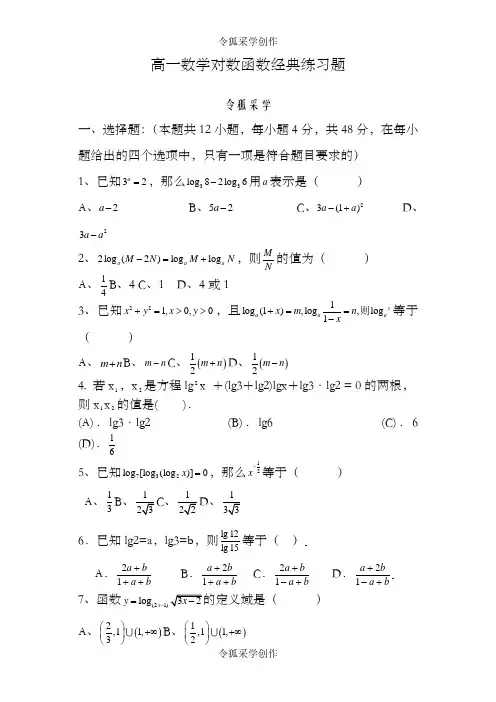 令狐采学创作
高一数学对数函数经典练习题
令狐采学
一、选择题:(本题共12小题,每小题4分,共48分,在每小
题给出的四个选项中,只有一项是符合题目要求的)
1、已知3^a = 2,那么log₃8 − 2log₃6用a表示是( )
A、a − 2 B、5a − 2 C、3a − (1 + a)² D、
3a − a²
2、2logₐ(M − 2N) = logₐM + logₐN,则M/N的值为( )
A、1/4 B、4 C、1 D、4或1
3、已知x² + y² = 1, x > 0, y > 0,且logₐ(1 + x) = m, logₐ 1/(1 − x) = n, 则logₐ^y等于
( )
A、m + n B、m − n C、1/2(m + n) D、1/2(m − n)
4. 若x₁,x₂是方程lg²x +(lg3+lg2)lgx+lg3·lg2 = 0的两根,
则x₁x₂的值是( ).
(A).lg3·lg2 (B).lg6 (C).6
(D).1/6
5、已知log₇[log₃(log₂x)] = 0,那么x^(−1/2)等于( )
A、1/3 B、1/(2√3) C、1/(2√2) D、1/(3√3)
6.已知lg2=a,lg3=b,则lg12/lg15等于( ).
A.(2a + b)/(1 + a + b) B.(a + 2b)/(1 + a + b) C.(2a + b)/(1 − a + b) D.(a + 2b)/(1 − a + b).
7、函数y = log₍₂ₓ₋₁₎√(3x − 2)的定义域是( )
A、(2/3, 1)∪(1, +∞) B、(1/2, 1)∪(1, +∞)
令狐采学创作